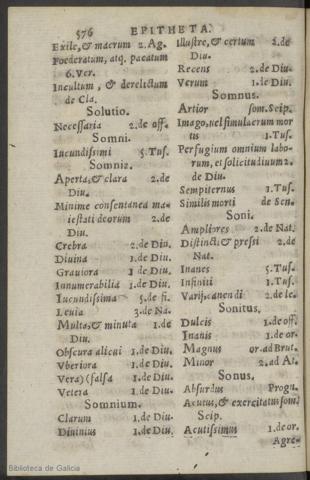 576 EPITHETA.
Exile, & macrum 2. Ag.
Foederatum, atq. pacatum
6. Ver.
Incultum, & derelictum
de Cla.
Solutio.
Necessaria 2. de off.
Somni.
Iucundissimi 5. Tus.
Somnia.
Aperta, & clara 2. de
Diu.
Minime consentanea ma=
iestati deorum 2. de
Diu.
Crebra 2. de Diu.
Diuina 1. de Diu.
Grauiora 1 de Diu.
Innumerabilia 1. de Diu.
Iucundissima 5. de fi.
Leuia 3. de Na.
Multa, & minuta 1. de
Diu.
Obscura alicui 1. de Diu.
Vberiora 1. de Diu.
Vera) (falsa 1. de Diu.
Vetera 1. de Diu.
Somnium.
Clarum 1. de Diu.
Diuinius 1. de Diu.
Illustre, & certum 2. de
Diu.
Recens 2. de Diu.
Verum 1. de Diu.
Somnus.
Artior som. Scip.
Imago, uel simulacrum mor
tis 1. Tus.
Perfugium omnium labo-
rum, et solicitudiuum 2.
de Diu.
Sempiternus 1. Tus.
Similis morti de Sen.
Soni.
Ampliores 2. de Nat.
Distincti, & pressi 2. de
Nat.
Inanes 5. Tus.
Infiniti 1. Tus.
Varij canendi 2. de le.
Sonitus.
Dulcis 1. de off.
Inanis 1. de or.
Magnus or. ad Brut.
Minor 2. ad At.
Sonus.
Absurdus Progn.
Acutus, & exercitatus som.
Scip.
Acutissimus 1. de or.
Agre-
Biblioteca de Galicia